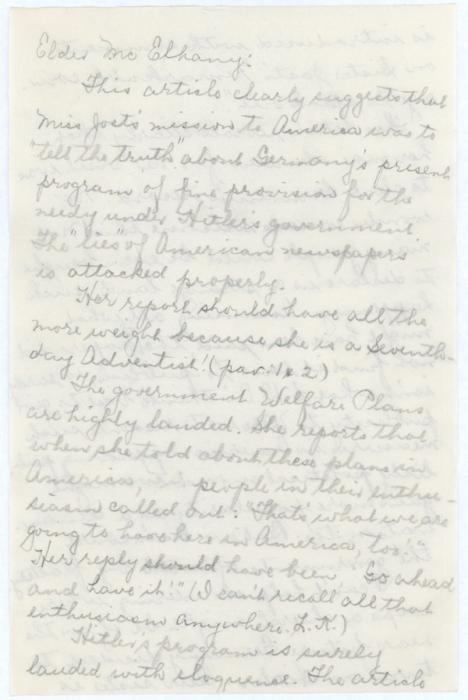 Elder Mc Elhany:
This article clearly suggests that
Miss Jost's mission to America was to
"tell the truth" about Germany's present
program of fine provision for the
needy under Hitler's government
The "lies" of American newspapers
is attacked properly.
Her report should have all the
more weight because she is a Seventh-
day Adventist! (par. 1 & 2)
The government Welfare Plans
are highly lauded. She reports that
when she told about these plans in
America, people in their enthu-
siasm called out: "That's what we are
going to have here in America, too!"
Her reply should have been, Go ahead
and have it!" (I can't recall all that
enthusiasm anywhere. L.K.)
Hitler's program is surely
lauded with eloquence. The article